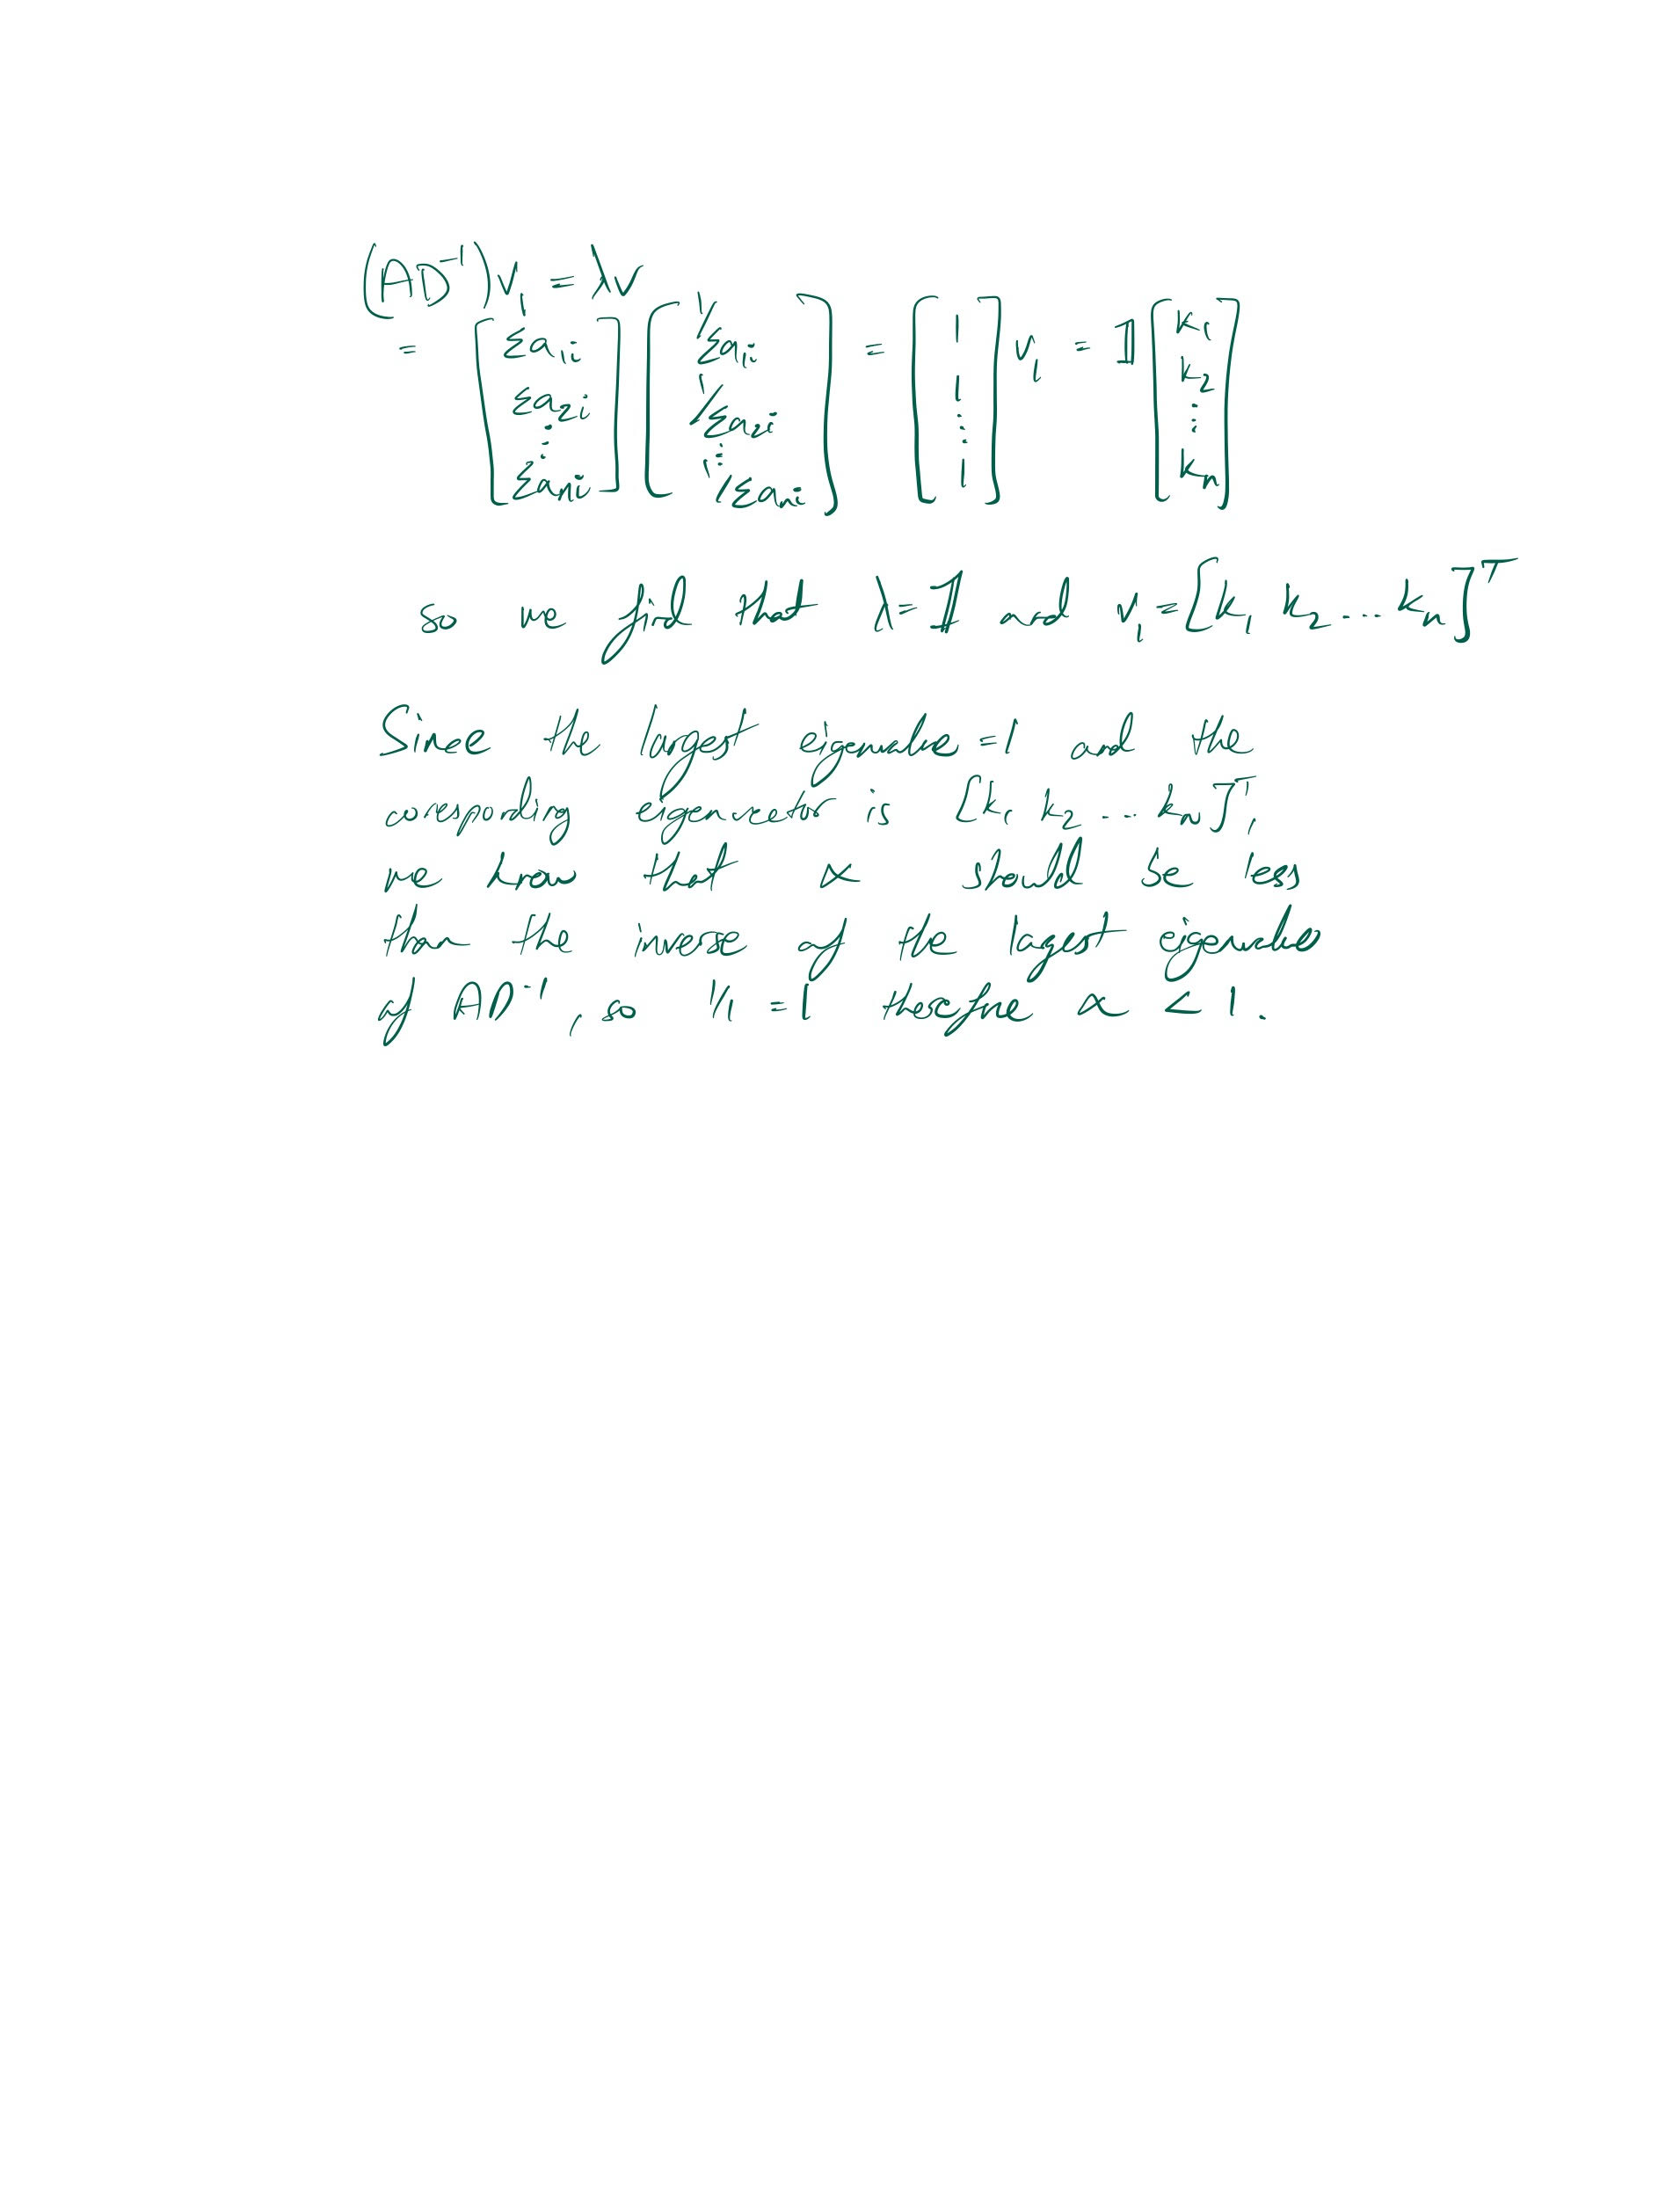 (AD⁻¹)v₁ = λv
= [Σa₁ᵢ Σa₂ᵢ ⋮ Σaₙᵢ] [1/Σa₁ᵢ 1/Σa₂ᵢ ⋮ 1/Σaₙᵢ] = [1 1 ⋮ 1] v₁ = 1 [k₁ k₂ ⋮ kₙ]
so we find that λ=1 and v₁=[k₁ k₂ ... kₙ]ᵀ
Since the largest eigenvalue =1 and the
corresponding eigenvector is [k₁ k₂ ... kₙ]ᵀ,
we know that α should be less
than the inverse of the largest eigenvalue
of AD⁻¹, so 1/1 =1 therefore α < 1.